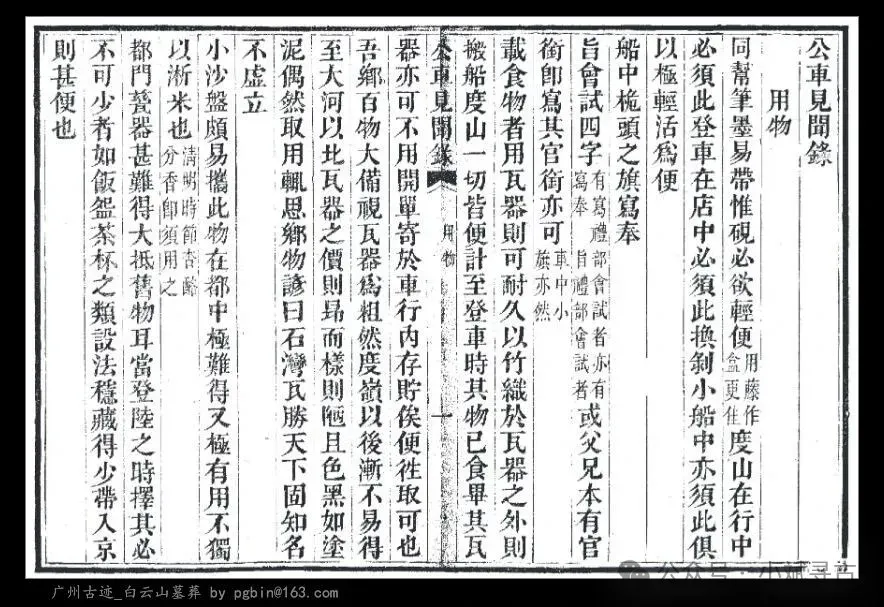 公車見聞錄
用物
同幫筆墨易帶惟硯必欲輕便用藤作盒更佳度山在行中
必須此登車在店中必須此換剝小船中亦須此俱
以極輕活爲便
船中桅頭之旗寫奉
旨會試四字有寫禮部會試者亦有寫奉 旨禮部會試者或父兄本有官
銜卽寫其官銜亦可車中小旗亦然
載食物者用瓦器則可耐久以竹織於瓦器之外則
搬船度山一切皆便計至登車時其物已食畢其瓦
公車見聞錄 用物 一
器亦可不用開單寄於車行內存貯俟便徃取可也
吾鄉百物大備視瓦器爲粗然度嶺以後漸不易得
至大河以北瓦器之價則昂而樣則陋且色黑如塗
泥偶然取用輒思鄉物諺曰石灣瓦勝天下固知名
不虛立
小沙盤頗易攜此物在都中極難得又極有用不獨
以淅米也清明時節杏酪分香卽須用之
都門甆器甚難得大抵舊物耳當登陸之時擇其必
不可少者如飯盌茶杯之類設法穩藏得少帶入京
則甚便也
广州古迹_白云山墓葬 by pgbin@163.com
公众号·小斌寻古